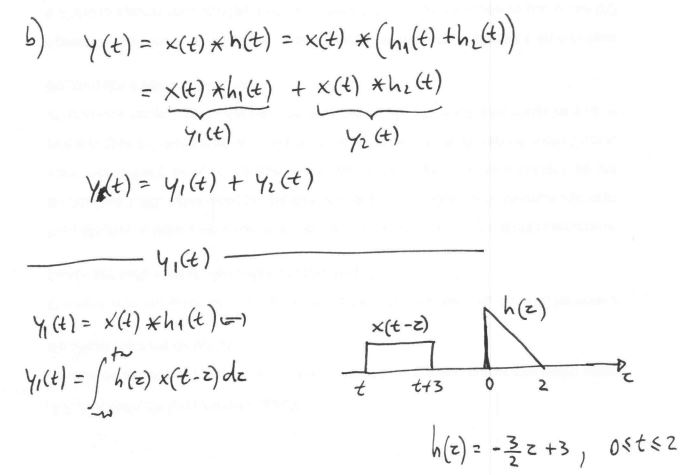 b) y(t) = x(t) * h(t) = x(t) * (h₁(t) + h₂(t))
= x(t) * h₁(t) + x(t) * h₂(t)
y₁(t) y₂(t)
y(t) = y₁(t) + y₂(t)
y₁(t)
y₁(t) = x(t) * h₁(t) ⟺
y₁(t) = ∫_{-∞}^{+∞} h(τ) x(t-τ) dτ
x(t-τ) h(τ)
t t+3 0 2 τ
h(τ) = -3/2 τ + 3, 0 ≤ t ≤ 2